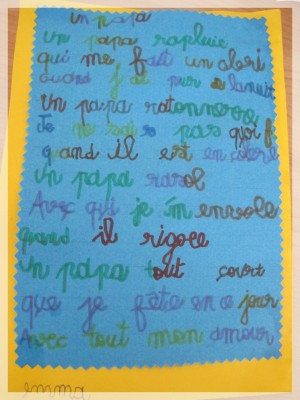 un papa
un papa rapluie
qui me fait un abri
Quand j'ai peur la nuit
Un papa ratonnerre
Je ne sais pas quoi f
quand il est en colère
Un papa rasol
Avec qui je m'envole
quand il rigole
Un papa tout court
que je fête en ce jour
Avec tout mon amour
emma